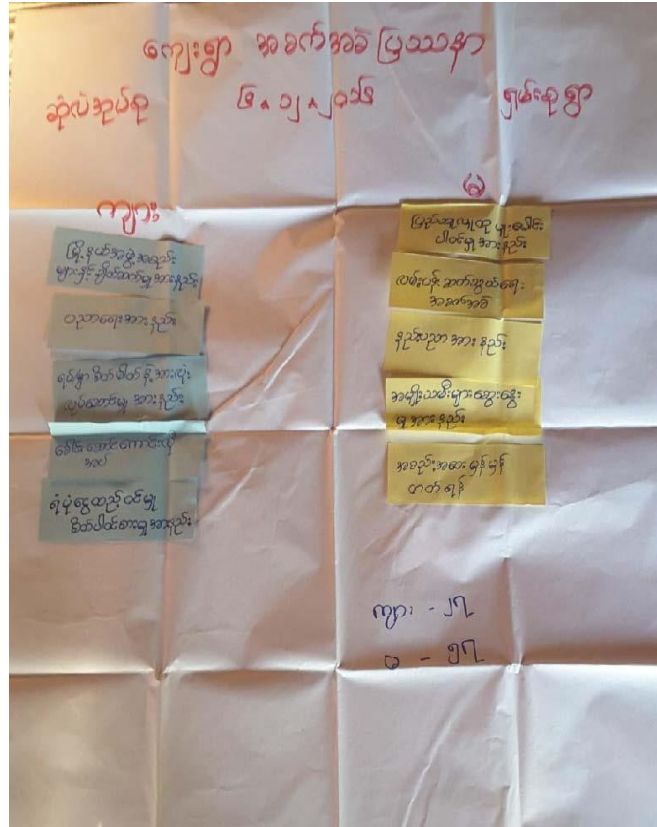 ကျေးရွာ အခက်အခဲ ပြဿနာ
ဆုံလဲအုပ်စု ၆.၁၂.၂၀၁၆ ရှမ်းစုရွာ
ကျား
မြို့နယ်အဖွဲ့အစည်း
များနှင့်ချိတ်ဆက်မှုအားနည်း
ပညာရေးအားနည်း
ရပ်ရွာ စိတ်ဓါတ်နဲ့အားလုံး
လုပ်ဆောင်မှု အားနည်း
ခေါင်းဆောင်ကောင်းလို
အပ်
ရံပုံငွေထည့်ဝင်မှု
စိတ်ပါဝင်စားမှုအားနည်း
မ
ပြည်သူလူထု ပူးပေါင်း
ပါဝင်မှုအားနည်း
လမ်းပန်းဆက်သွယ်ရေး
အခက်အခဲ
နည်းပညာ အားနည်း
အမျိုးသမီးများဆွေးနွေး
မှုအားနည်း
အစည်းအဝေးမှန်မှန်
တတ်ရန်
ကျား - ၂၇
မ - ၅၇